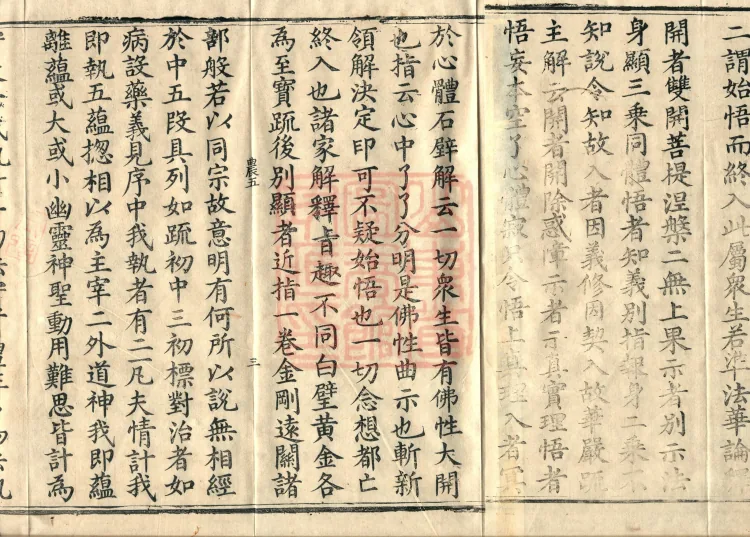 二謂始悟而終入此屬衆生若準法華論
開者雙開菩提涅槃二無上果示者別示法
身顯三乗同體悟者知義別指報身二乗不
知說令知故入者因義修因契入故華嚴䟽
主解云開者開除惑障示者示真實理悟者
悟妄本空了心體寂 令悟上真理入者冥
於心體石壁解云一切衆生皆有佛性大開
也指云心中了了分明是佛性曲示也斬新
領解決定印可不疑始悟也一切念想都亡
終入也諸家解釋㫖趣不同白璧黄金各
為至寳䟽後別顯者近指一卷金剛遠關諸
農五
三
部般若以同宗故意明有何所以說無相經
於中五段具列如䟽初中三初標對治者如
病設藥義見序中我執者有二凡夫情計我
即執五蘊揔相以為主宰二外道神我即蘊
離蘊或大或小幽靈神聖動用難思皆計為